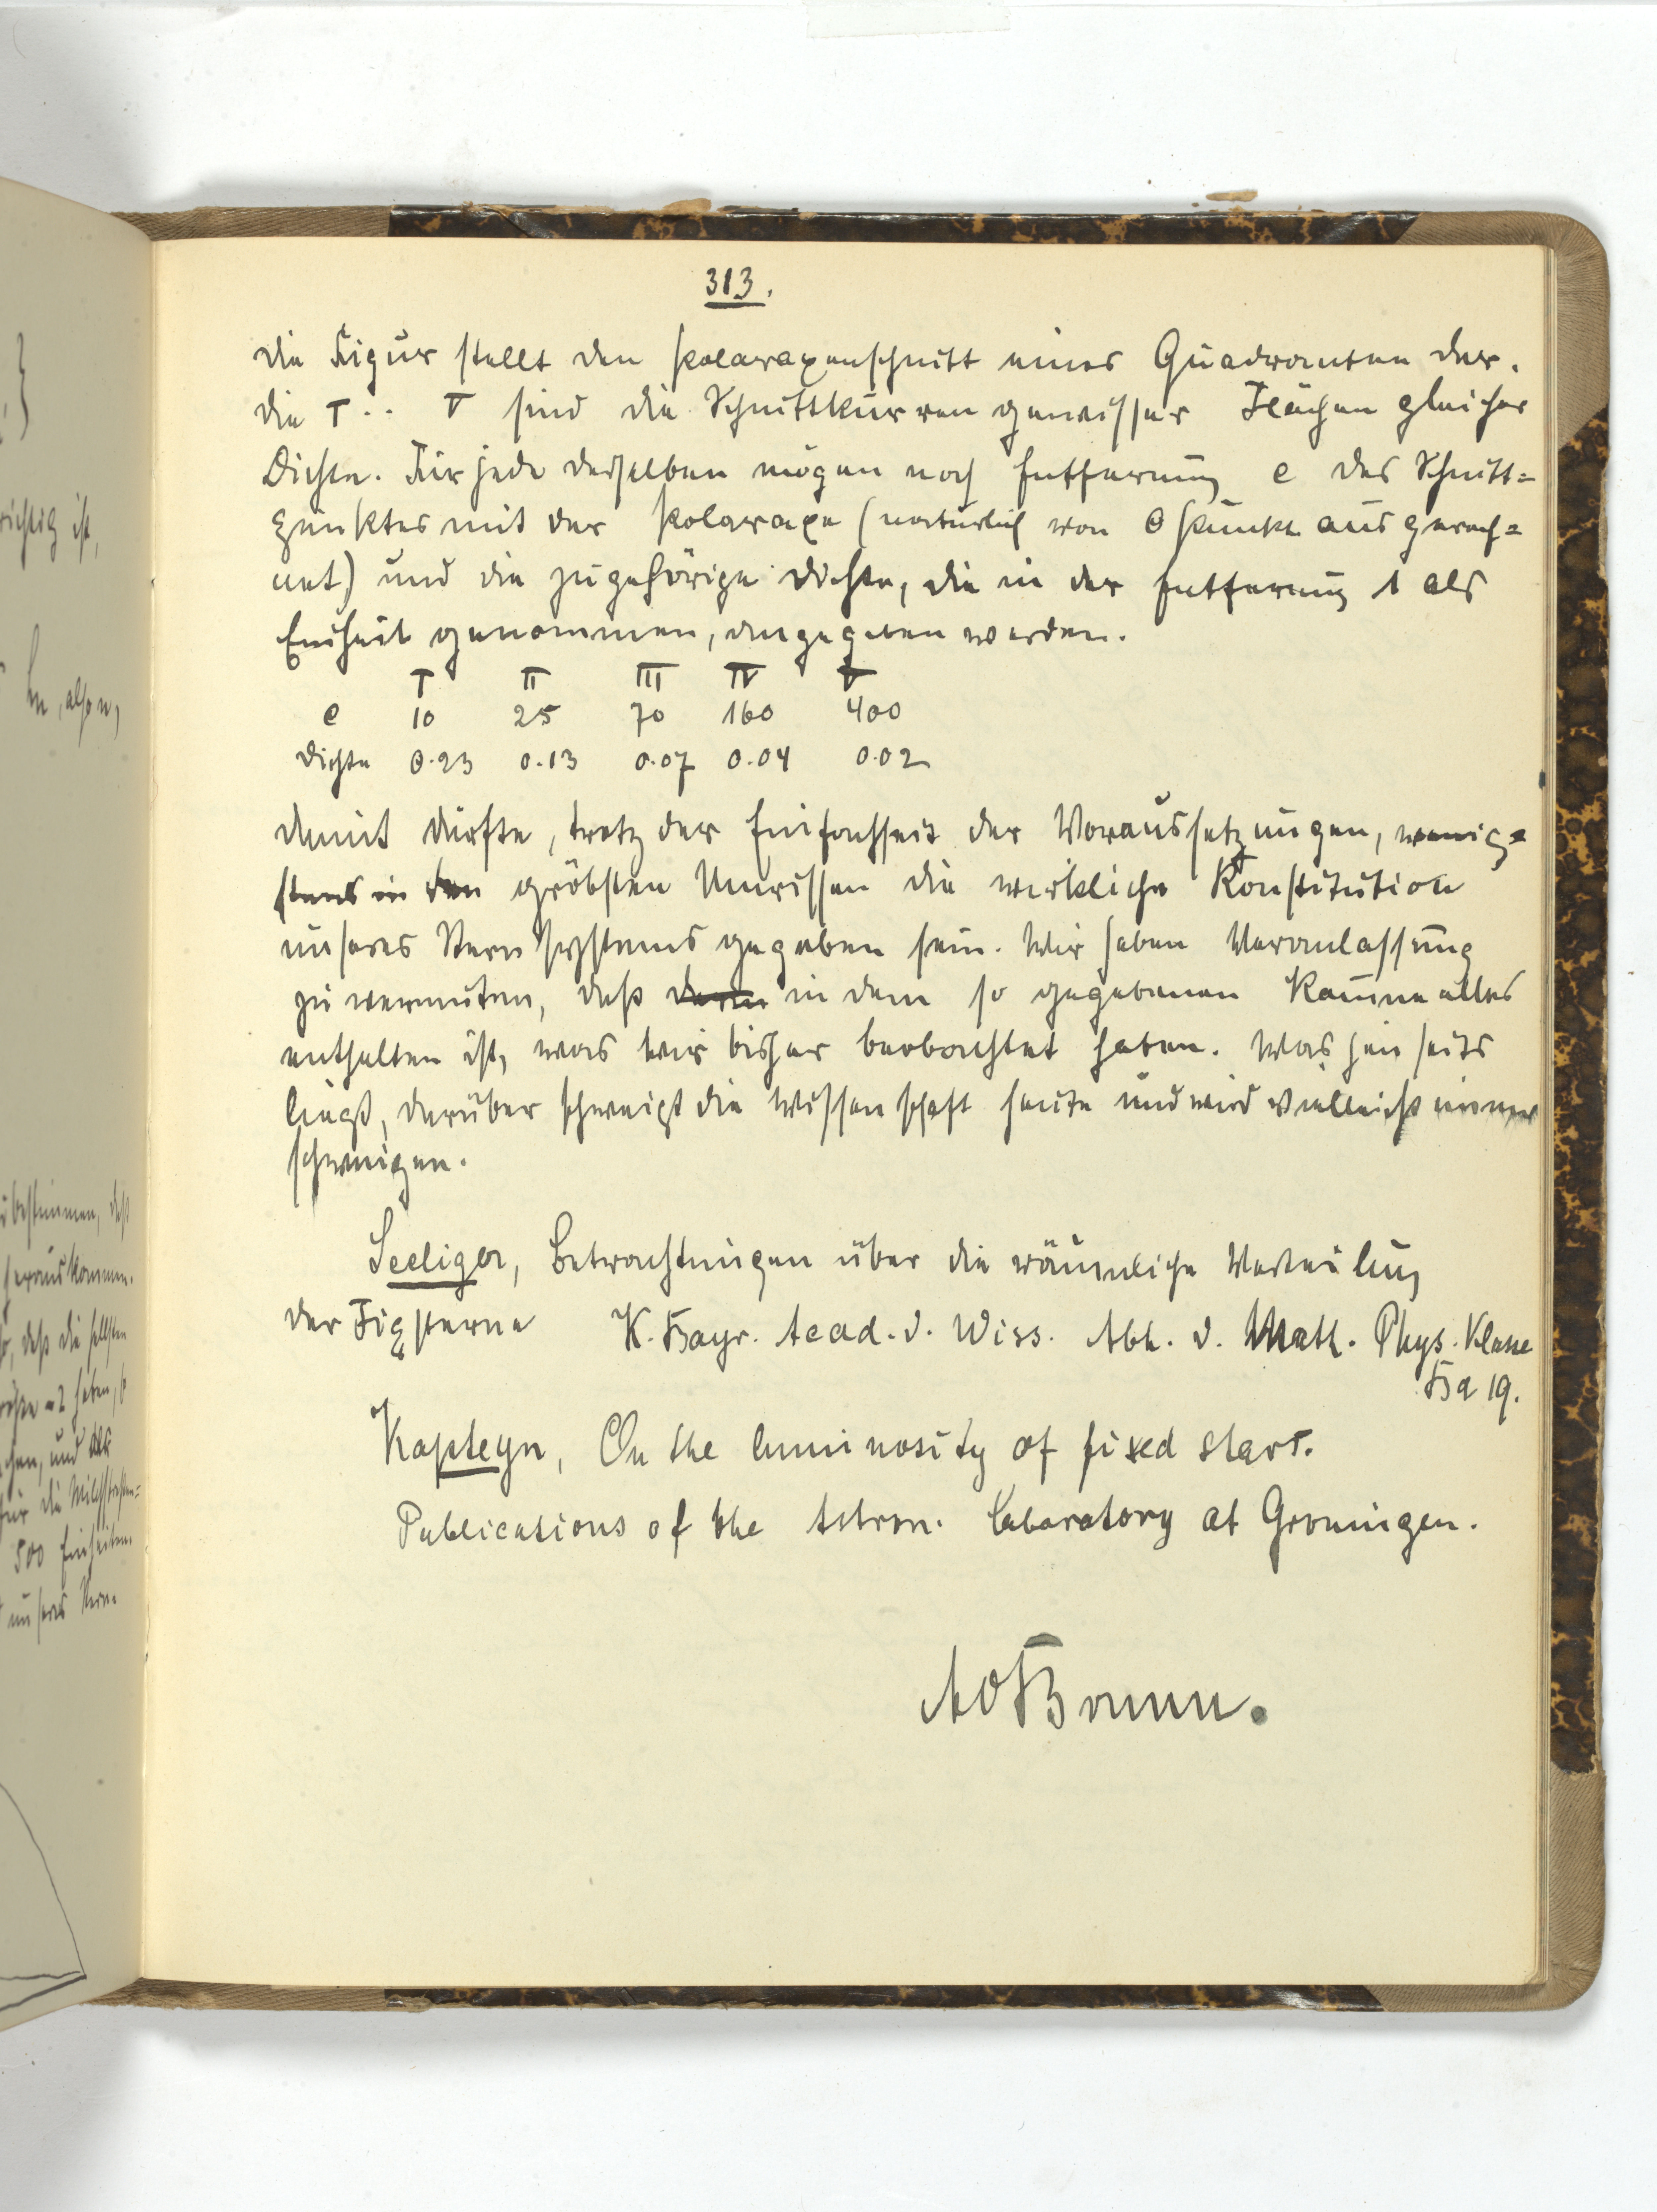 313.
Die Figur stellt den Polaraxenschnitt eines Quadranten dar.
Die I .. V sind die Schnittkurven gewisser Flächen gleicher
Dichte. Für jede derselben mögen noch Entfernung ρ des Schnitt=
punktes mit der Polaraxe (natürlich von 0 Punkt aus gerech=
net) und die zugehörige Dichte, die in der Entfernung 1 als
Einheit genommen, angegeben werden.
I II III IV V
ρ 10 25 70 160 400
Dichte 0.23 0.13 0.07 0.04 0.02
Damit dürfte, trotz der Einfachheit der Voraussetzungen, wenig=
stens in den gröbsten Umrissen die wirkliche Konstitution
unseres Sternsystems gegeben sein. Wir haben Veranlassung
zu vermuten, daß darin in dem so gegebenen Raume alles
enthalten ist, was wir bisher beobachtet haben. Was jenseits
liegt, darüber schweigt die Wissenschaft heute und wird vielleicht immer
schweigen.
Seeliger, Betrachtungen über die räumliche Verteilung
der Fixsterne K. Bayr. Acad. d. Wiss. Abh. d. Math. Phys. Klasse
Bd 19.
Kapteyn, On the luminosity of fixed stars.
Publications of the Astron. Laboratory at Groningen.
richtig ist,
also
bestimmen, daß
herauskommen.
daß die hellsten
haben, so
und
für die Milchstraßen=
500 Einheiten.
unseres Stern-